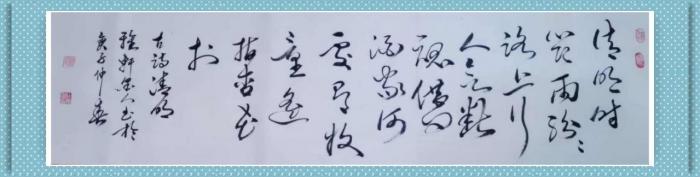 清明时
节雨纷纷
路上行
人欲断
魂借问
酒家何
处有牧
童遥
指杏花
村
古诗清明
轩人书於
庚子仲春